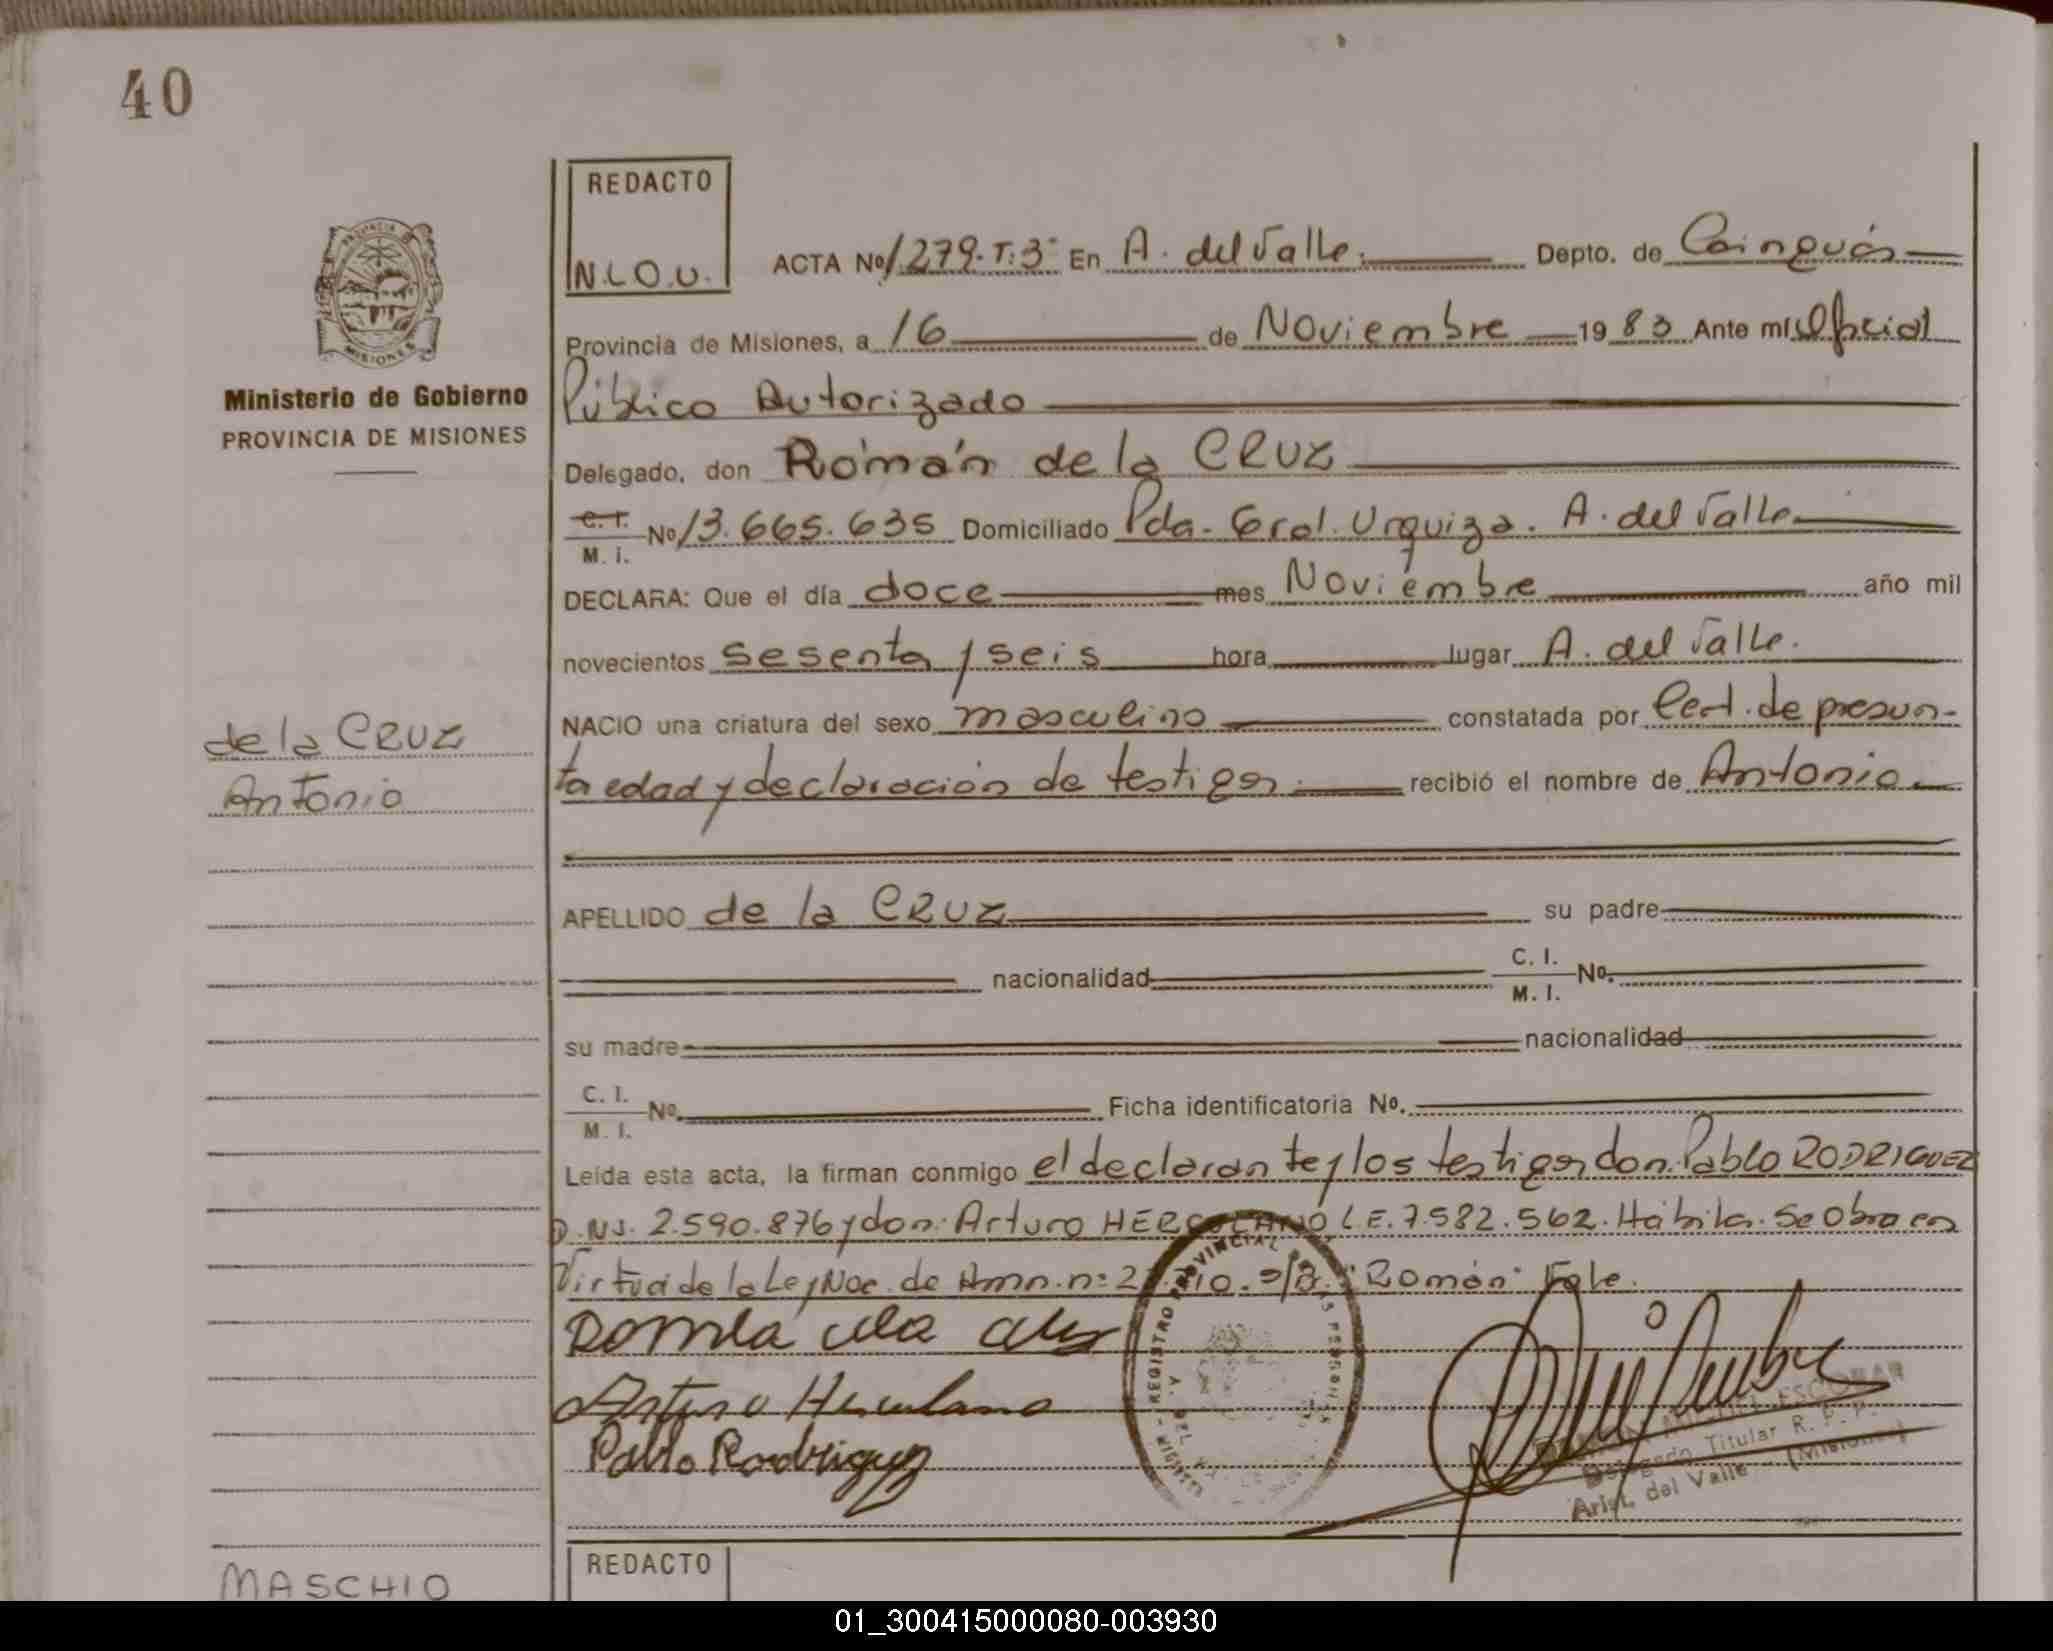 40
REDACTO
N.L.O.U.
ACTA No 1.279.T:3° En A. del Valle. Depto. de Cainguás
Provincia de Misiones, a 16 de Noviembre 1983 Ante mí Oficial
Público Autorizado
Delegado, don Román de la CRUZ
C. I. M. I. No 13.665.635 Domiciliado Pda. Gral. Urquiza. A. del Valle
DECLARA: Que el día doce mes Noviembre año mil
novecientos sesenta y seis hora lugar A. del Valle.
NACIO una criatura del sexo masculino constatada por Cert. de presun-
ta edad y declaración de testigos. recibió el nombre de Antonio
APELLIDO de la CRUZ su padre
nacionalidad C. I. M. I. No.
su madre nacionalidad
C. I. M. I. No. Ficha identificatoria No.
Leída esta acta, la firman conmigo el declarante y los testigos don: Pablo RODRIGUEZ
D.N.I. 2.590.876 y don: Arturo HERCOLANO L.E. 7.582.562. Hábiles. Se Obra en
Virtud de la Ley Nac. de Amn. n: S/R. "Román" Vale.
Arturo Herculano
Pablo Rodriguez
REGISTRO PROVINCIAL DE LAS PERSONAS
ESCOBAR
Delegado Titular R. P. P.
Arist. del Valle - (Misiones)
Ministerio de Gobierno
PROVINCIA DE MISIONES
MISIONES
de la CRUZ
Antonio
REDACTO
MASCHIO
01_300415000080-003930